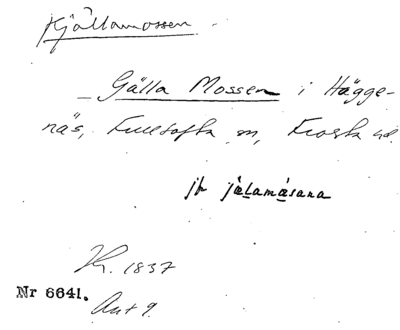 Kjällamossen
– Gälla Mossen i Hägge-
näs, Fulltofta sn, Frosta hd.
jfr jälamåsana
1837
Nr 6641.
Ant 9.